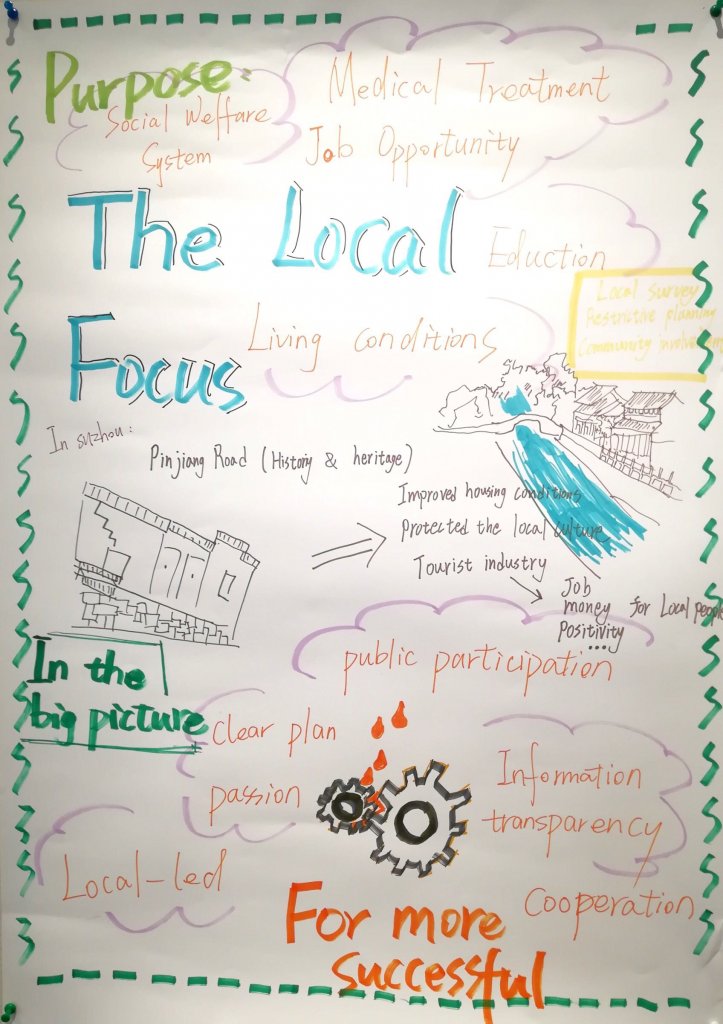 Purpose:
Social Welfare
System
Medical Treatment
Job Opportunity
The Local
Eduction
Focus
Living conditions
Local survey
Restrictive planning
Community involvement
In suzhou:
Pinjiang Road (History & heritage)
Improved housing conditions
Protected the local culture
Tourist industry
Job
money for Local people
positivity
....
In the
big picture
public participation
clear plan
passion
Information
transparency
Local-led
Cooperation
For more
successful